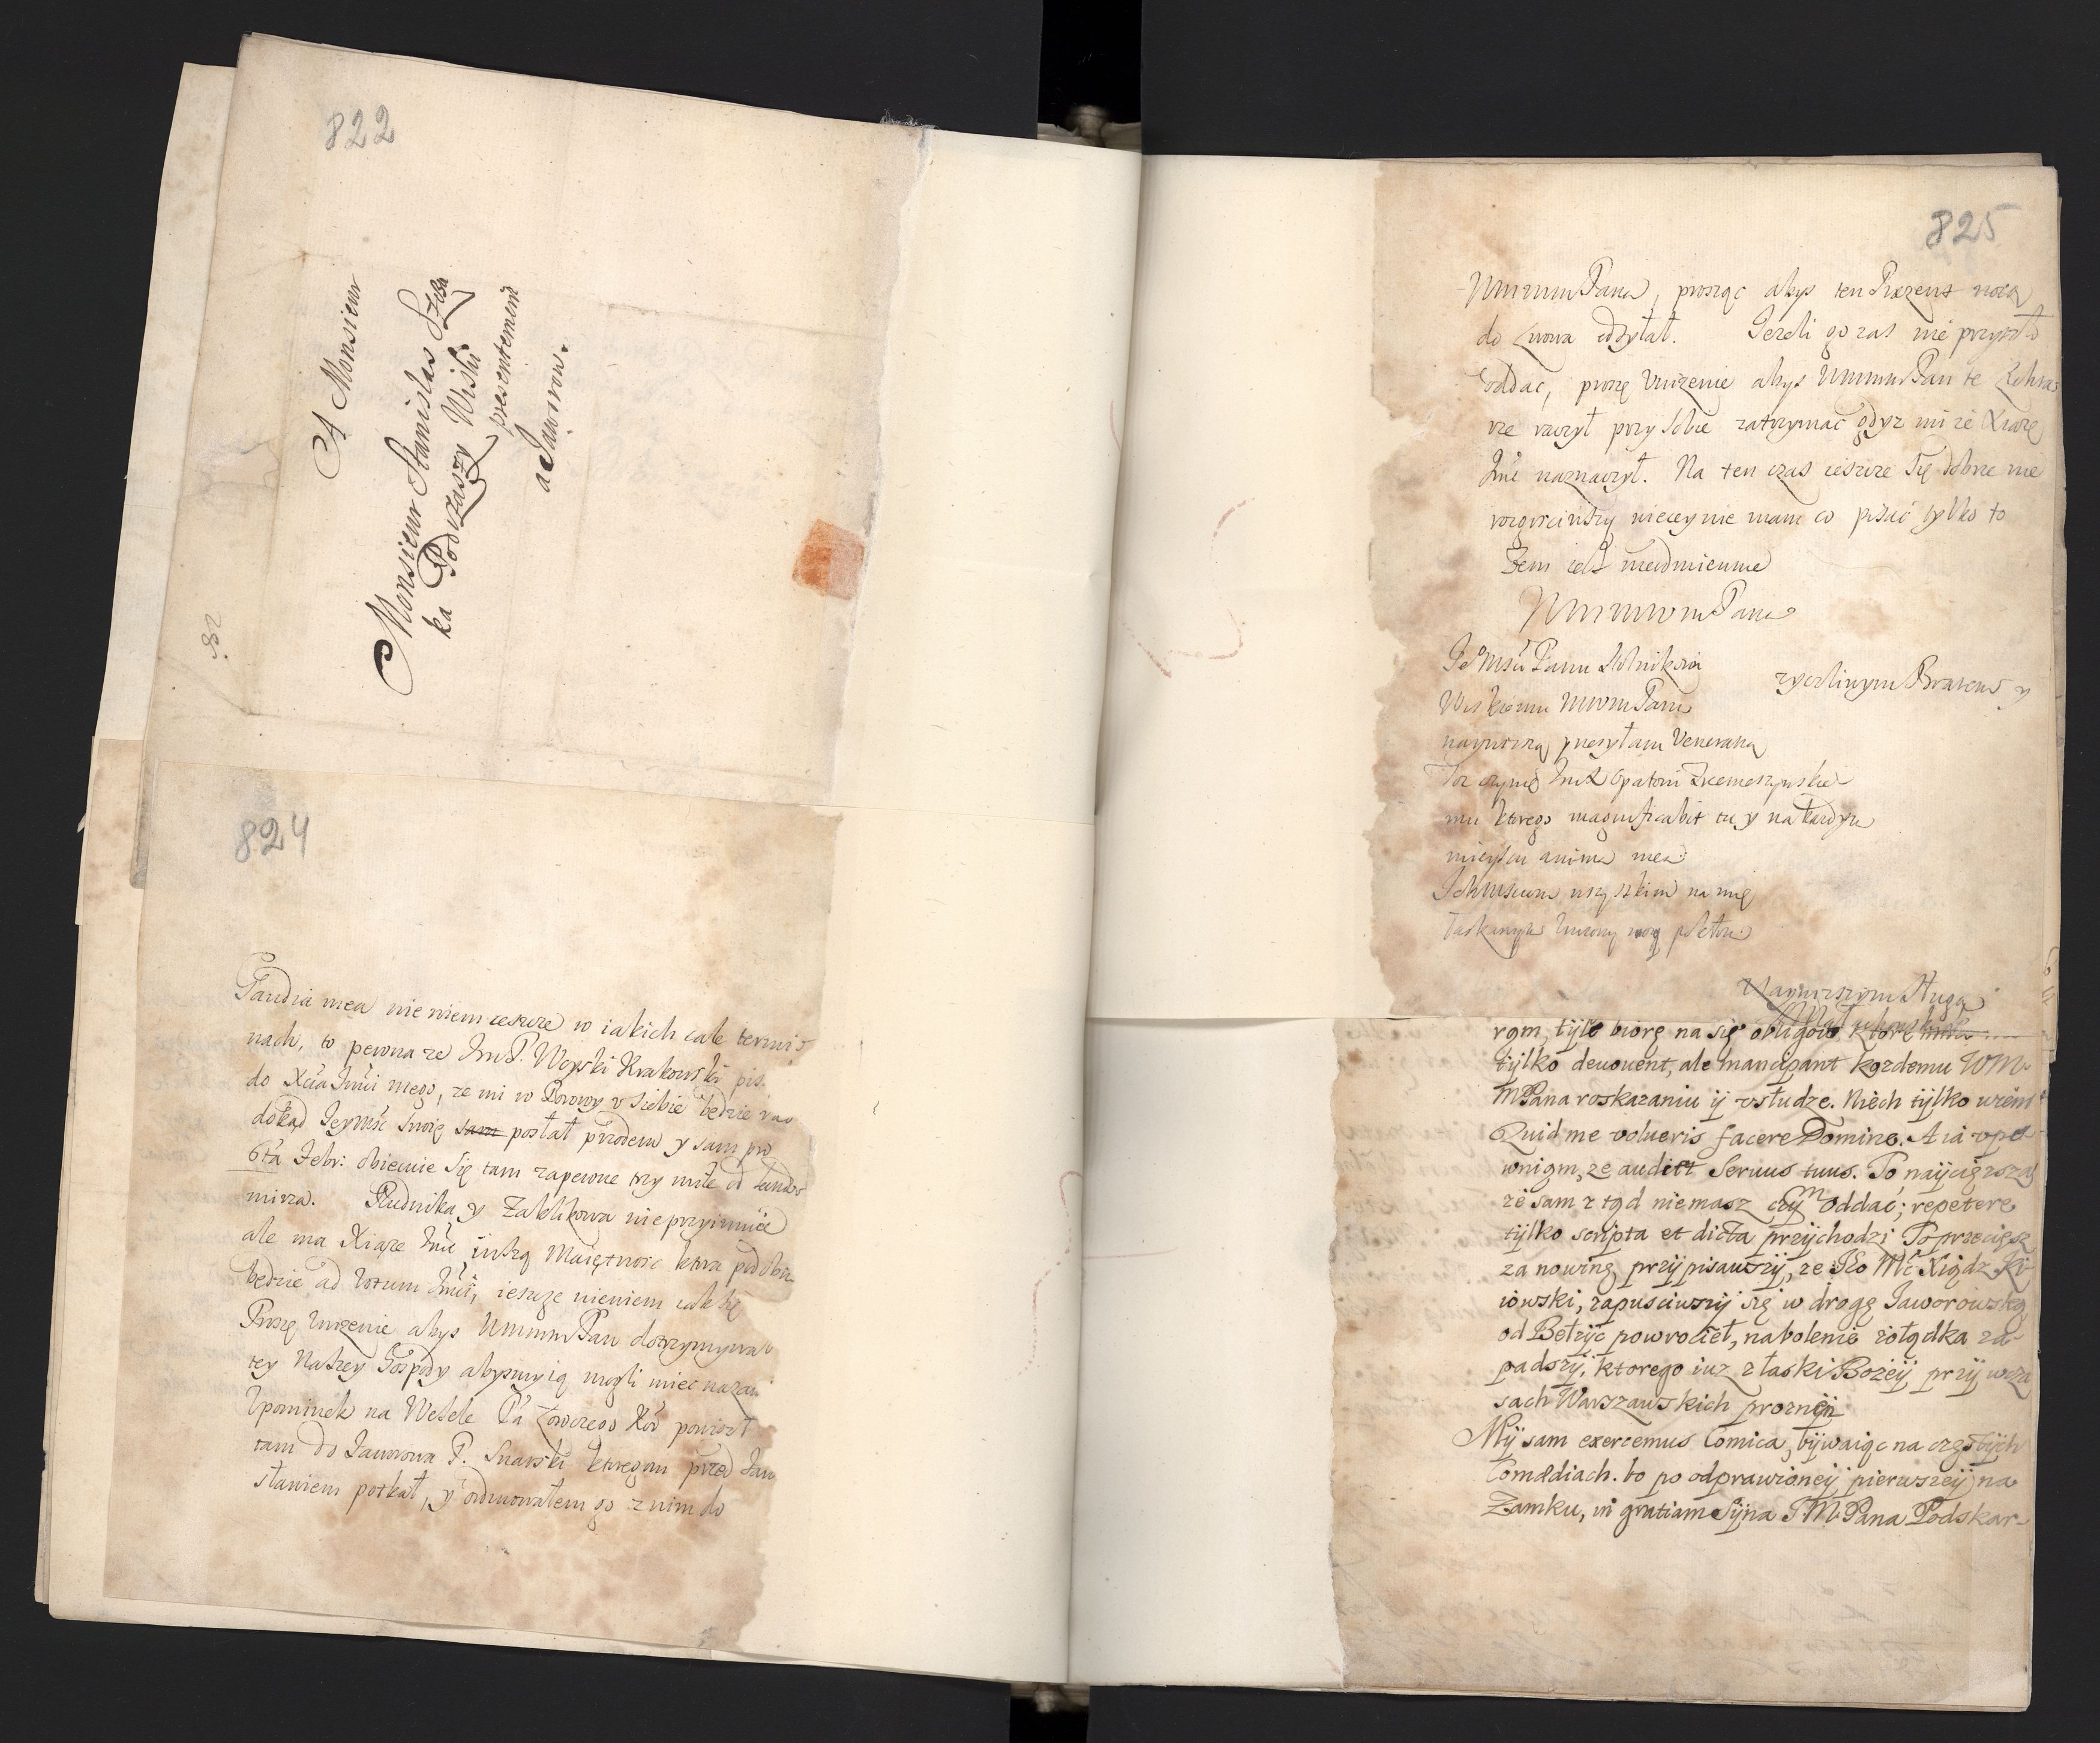 822
A Monsieur
Monsieur Stanislas Szczu
ka Podczaszy Wiski
presentement
a Jaworow.
824
Gaudia mea nie wiem ieszcze w iakich cale termi
nach, to pewna ze Im P. Woyski Krakowski pis
do Xcia Imci mego, ze mi w Dwory v siebie będzie rad
dokąd Ieymść swoię sam posłał przodem y sam pro
6ta Febr: obiecuie się tam zapewne trzy mile od Sendo
mirza. Rudnika y Zaklikowa nie przyimuie
ale ma Xiąze Imć inszą Maiętnosc ktora podobn
będzie ad votum Imci, ieszcze nie wiem iak się
Proszę vnizenie abys Wmmm Pan dotrzymywał
tey Naszey Gospody abysmy ią mogli miec nazad
Vpominek na Wesele Pa Łowczego Kor powiozł
tam do Jaworowa P. Snarski ktoregom przed Jaro
sławiem potkał, y odmowałem go z nim do
825
Wmmm Pana, prosząc abys ten Prezent
do Lwowa odsyłał. Jezeli go zas nie przyszło
oddac, proszę vnizenie abys Wmmm Pan te
raczył przy sobie zatrzymac gdyz mi ie Xiąze
Imć naznaczył. Na ten czas ieszcze się dobrze nie
rozgosciwszy więcey nie mam co pisać tylko to
Zem iest nieodmiennie
Wmmm Pana
zyczliwym Bratem y
Je Mści Panu Stolnikowi
Wiskiemu Mwm Panu
nayniszą przesyłam Veneracią
Toz czynię Im X Opatowi
mu ktorego magnificabit tu y na kazdym
mieyscu anima mea
Ichmsciom wszystkim na mię
łaskawym
Nayniszszym Sługą
rąm, tyle biorę na się obligow, ktore
tylko deuouent, ale mancipant kozdemu WM
MPana roskazaniu ij vsłudze. Niech tylko wiem
Quid me volueris facere Domine. A ia vpe-
wnigm, ze audiet Seruus tuus. To naycięzsza
ze sam z tąd niemasz czym oddać; repetere
tylko scripta et dicta przychodzi To przeciesz
za nowinę przypisawszy, ze Je Mć Xiądz Ki-
iowski, zapusciwszy się w drogę Jaworowską
od Bełzyc powrocieł, na bolenie zołądka za-
padszy, ktorego iuz z łaski Bozey przy wcza
sach Warszawskich prozney
My sam exercemus Comica, bywaiąc na częstych
Comædiach. bo po odprawioney pierwszey na
Zamku, in gratiam Syna J M Pana Podskar-